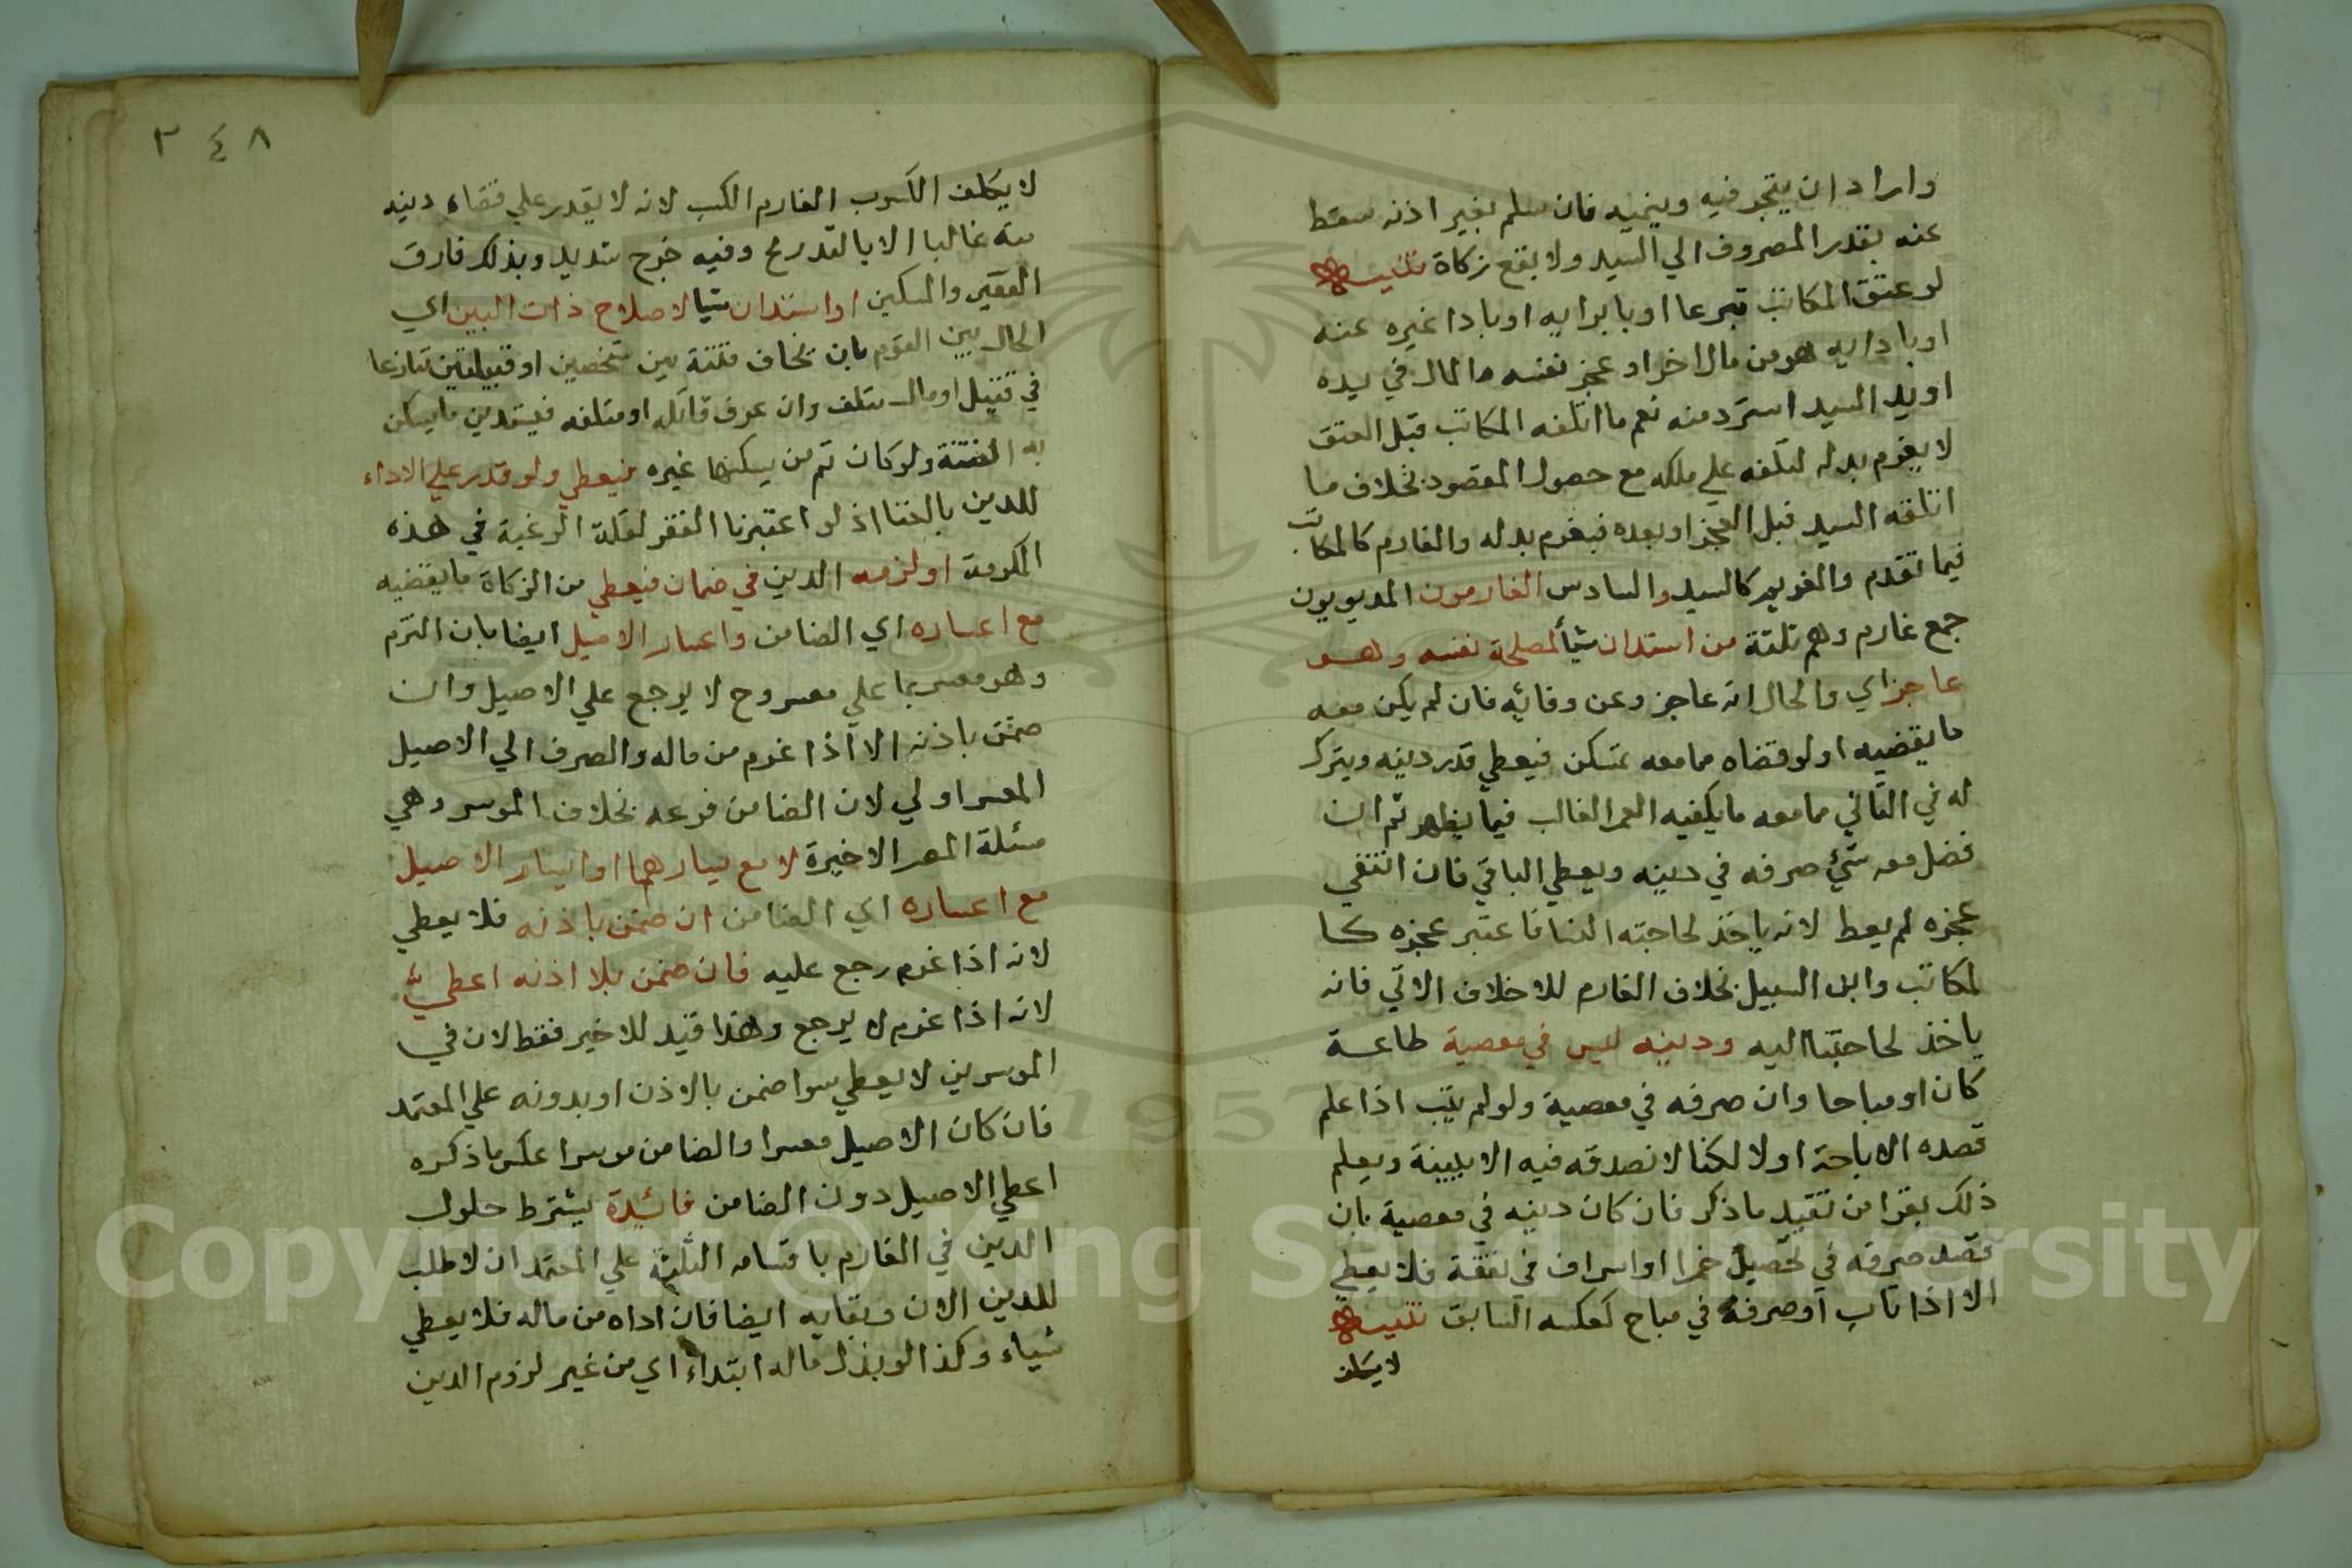 واراد ان يتجر فيه وينميه فان سلم بغير اذنه سقط
عنه بقدر المصروف الي السيد ولا يقع زكاة تنبيه
لو عتق المكاتب تبرعا او بابرايه او باداغيره عنه
او بادايه هو من مال اخر او عجز نفسه والمال في يده
او يد السيد استرد منه نعم ما اتلفه المكاتب قبل العتق
لا يغرم بدله لتلفه علي ملكه مع حصول المقصود بخلاف ما
اتلفه السيد قبل العجز او بعده فيغرم بدله والغارم كالمكاتب
فيما تقدم والغريم كالسيد والسادس الغارمون المديويون
جمع غارم وهم ثلثة من استدان شيأ لمصلحة نفسه وهو
عاجز اي والحال انه عاجز وعن وفائيه فان لم يكن معه
ما يقضيه او لو قضاه مما معه تمسكن فيعطي قدر دينه ويترك
له في الثاني مما معه ما يكفيه العمر الغالب فيما يظهر ثم ان
فضل معه شيء صرفه في دينه ويعطي الباقي فان انتفي
عجزه لم يعط لانه ياخذ لحاجته الينا فاعتبر عجزه كا
لمكاتب وابن السبيل بخلاف الغارم للاخلاف الاتي فانه
ياخذ لحاجتنا اليه ودينه ليس في معصية طاعة
كان او مباحا وان صرفه في معصية ولو لم يتب اذا علم
قصده الاباحة اولا لكنا لا نصدقه فيه الا ببينة ويعلم
ذلك بقرا من تقييد ماذكر فان كان دينه في معصية بان
قصد صرفه في تحصيل خمرا او اسراف في نفقة فلا يعطي
الا اذا تاب او صرفه في مباح كعكسه السابق تنبيه
لا يكلف
٣٤٨
لا يكلف الكسوب الغارم الكسب لانه لا يقدر علي قضاء دينه
منه غالبا الا بالتدريج وفيه خرج شديد وبذلك فارق
الفقير والمسكين او استدان شيا لاصلاح ذات البين اي
الحال بين القوم بان يخاف فتنة بين شخصين او قبيلتين تنازعا
في قتيل او مال متلف وان عرف قاتله او متلفه فيستدين ما يسكن
به الفتنة ولو كان ثم من يسكنها غيره فيعطي ولو قدر علي الاداء
للدين بالغنا اذ لو اعتبرنا الفقر لقلة الرغبة في هذه
المكرمة او لزمه الدين في ضمان فيعطي من الزكاة ما يقضيه
مع اعساره اي الضامن واعسار الاصيل ايضا بان التزم
وهو معسر بما علي معسر وح لا يرجع علي الاصيل وان
ضمن باذنه الا اذا غرم من ماله والصرف الي الاصيل
المعسر اولي لان الضامن فرعه بخلاف الموسر وهي
مسئلة المعسر الاخيرة لا مع يسارهما او ايسار الاصيل
مع اعساره اي الضامن ان ضمن باذنه فلا يعطي
لانه اذا غرم رجع عليه فان ضمن بلا اذنه اعطي
لانه اذا غرم لا يرجع وهذا قيد للاخير فقط لان في
الموسرين لا يعطي سوا ضمن بالاذن او بدونه علي المعتمد
فان كان الاصيل معسرا والضامن موسرا عكس ما ذكره
اعطي الاصيل دون الضامن فائدة يشترط حلول
الدين في الغارم باقسامه الثلثة علي المعتمد ان لا طلب
للدين الان وبقايه ايضا فان اداه من ماله فلا يعطي
شياء وكذا لو بذل ماله ابتداء اي من غير لزوم الدين
Copyright © King Saud University
1957